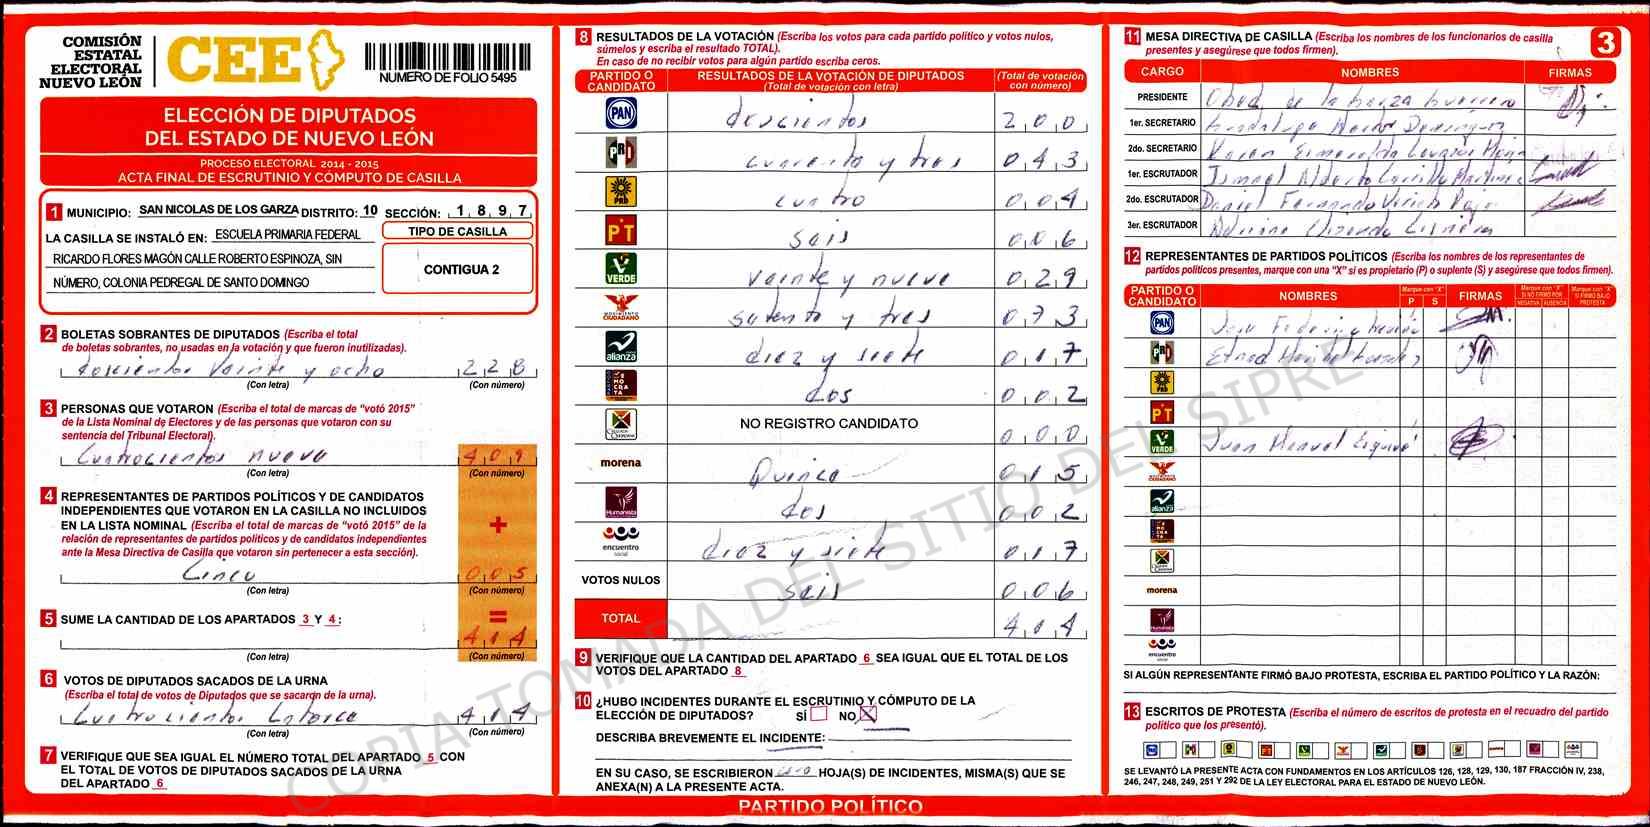 COMISIÓN
ESTATAL
ELECTORAL
NUEVO LEÓN
CEE
NUMERO DE FOLIO 5495
ELECCIÓN DE DIPUTADOS
DEL ESTADO DE NUEVO LEÓN
PROCESO ELECTORAL 2014 - 2015
ACTA FINAL DE ESCRUTINIO Y CÓMPUTO DE CASILLA
1 MUNICIPIO: SAN NICOLAS DE LOS GARZA DISTRITO: 10 SECCIÓN: 1 8 9 7
LA CASILLA SE INSTALÓ EN: ESCUELA PRIMARIA FEDERAL
RICARDO FLORES MAGÓN CALLE ROBERTO ESPINOZA, SIN
NÚMERO, COLONIA PEDREGAL DE SANTO DOMINGO
TIPO DE CASILLA
CONTIGUA 2
2 BOLETAS SOBRANTES DE DIPUTADOS (Escriba el total
de boletas sobrantes, no usadas en la votación y que fueron inutilizadas).
doscientos vainte y ocho 2 2 8
(Con letra) (Con número)
3 PERSONAS QUE VOTARON (Escriba el total de marcas de "votó 2015"
de la Lista Nominal de Electores y de las personas que votaron con su
sentencia del Tribunal Electoral).
Cuatrocientos nueve 4 0 9
(Con letra) (Con número)
4 REPRESENTANTES DE PARTIDOS POLÍTICOS Y DE CANDIDATOS
INDEPENDIENTES QUE VOTARON EN LA CASILLA NO INCLUIDOS
EN LA LISTA NOMINAL (Escriba el total de marcas de "votó 2015" de la
relación de representantes de partidos políticos y de candidatos independientes
ante la Mesa Directiva de Casilla que votaron sin pertenecer a esta sección).
+
Cinco 0 0 5
(Con letra) (Con número)
=
5 SUME LA CANTIDAD DE LOS APARTADOS 3 Y 4:
4 1 4
(Con letra) (Con número)
6 VOTOS DE DIPUTADOS SACADOS DE LA URNA
(Escriba el total de votos de Diputados que se sacaron de la urna).
Cuatrocientos Catorce 4 1 4
(Con letra) (Con número)
7 VERIFIQUE QUE SEA IGUAL EL NÚMERO TOTAL DEL APARTADO 5 CON
EL TOTAL DE VOTOS DE DIPUTADOS SACADOS DE LA URNA
DEL APARTADO 6
8 RESULTADOS DE LA VOTACIÓN (Escriba los votos para cada partido político y votos nulos,
súmelos y escriba el resultado TOTAL).
En caso de no recibir votos para algún partido escriba ceros.
PARTIDO O CANDIDATO
RESULTADOS DE LA VOTACIÓN DE DIPUTADOS
(Total de votación con letra)
(Total de votación con número)
PAN doscientos 2 0 0
PRI cuarenta y tres 0 4 3
PRD cuatro 0 0 4
PT seis 0 0 6
VERDE vainte y nueve 0 2 9
MOVIMIENTO CIUDADANO setenta y tres 0 7 3
alianza diez y siete 0 1 7
DEMOCRATA dos 0 0 2
NO REGISTRO CANDIDATO 0 0 0
morena Quince 0 1 5
Humanista dos 0 0 2
encuentro social diez y siete 0 1 7
VOTOS NULOS seis 0 0 6
TOTAL 4 1 4
9 VERIFIQUE QUE LA CANTIDAD DEL APARTADO 6 SEA IGUAL QUE EL TOTAL DE LOS
VOTOS DEL APARTADO 8
10 ¿HUBO INCIDENTES DURANTE EL ESCRUTINIO Y CÓMPUTO DE LA
ELECCIÓN DE DIPUTADOS? SÍ NO X
DESCRIBA BREVEMENTE EL INCIDENTE:
EN SU CASO, SE ESCRIBIERON HOJA(S) DE INCIDENTES, MISMA(S) QUE SE
ANEXA(N) A LA PRESENTE ACTA.
PARTIDO POLÍTICO
11 MESA DIRECTIVA DE CASILLA (Escriba los nombres de los funcionarios de casilla
presentes y asegúrese que todos firmen).
3
CARGO NOMBRES FIRMAS
PRESIDENTE Obed de la Garza Guerrero
1er. SECRETARIO Guadalupe
2do. SECRETARIO Karen Esmeralda
1er. ESCRUTADOR Ismael Alberto Carrillo Martinez
2do. ESCRUTADOR Daniel Fernando
3er. ESCRUTADOR Adriana Elizondo Cisneros
12 REPRESENTANTES DE PARTIDOS POLÍTICOS (Escriba los nombres de los representantes de
partidos políticos presentes, marque con una "X" si es propietario (P) o suplente (S) y asegúrese que todos firmen).
PARTIDO O CANDIDATO
NOMBRES
Marque con "X"
P S
FIRMAS
Marque con "X" SI NO FIRMÓ POR
NEGATIVA AUSENCIA
Marque con "X" SI FIRMÓ BAJO PROTESTA
PAN Jose Federico
PRI
PRD
PT
VERDE Juan Manuel
MOVIMIENTO CIUDADANO
alianza
morena
Humanista
encuentro social
SI ALGÚN REPRESENTANTE FIRMÓ BAJO PROTESTA, ESCRIBA EL PARTIDO POLÍTICO Y LA RAZÓN:
13 ESCRITOS DE PROTESTA (Escriba el número de escritos de protesta en el recuadro del partido
político que los presentó).
SE LEVANTÓ LA PRESENTE ACTA CON FUNDAMENTOS EN LOS ARTÍCULOS 126, 128, 129, 130, 187 FRACCIÓN IV, 238,
246, 247, 248, 249, 251 Y 292 DE LA LEY ELECTORAL PARA EL ESTADO DE NUEVO LEÓN.
COPIA TOMADA DEL SITIO DEL SIPRE